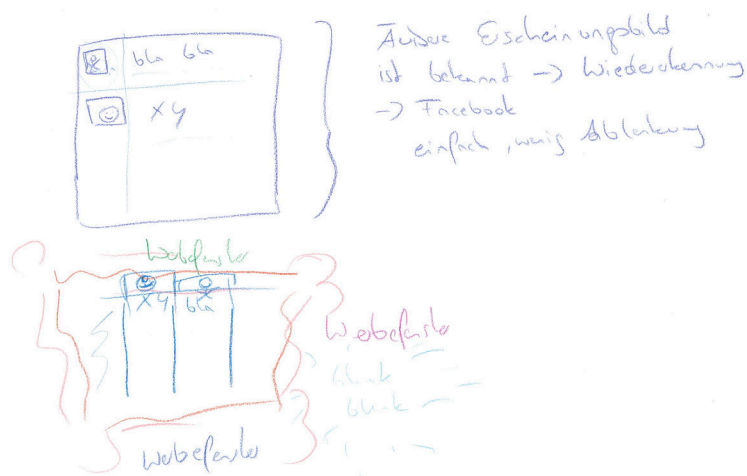 bla bla
xy
Äußere Erscheinungsbild
ist bekannt -> Wiedererkennung
-> Facebook
einfach, wenig Ablenkung
Werbefenster
xy bla
Werbefenster
blink
blink
Werbefenster